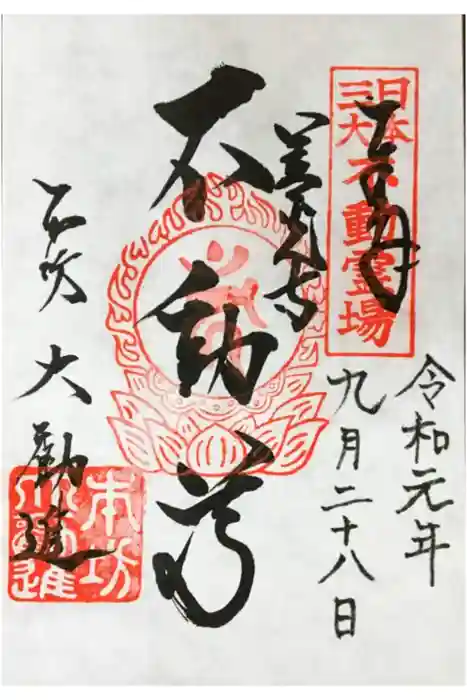 令和元年
九月二十八日
日本
三大不動霊場
奉拝
善光寺
不動尊
大勧進
本坊
大勧進